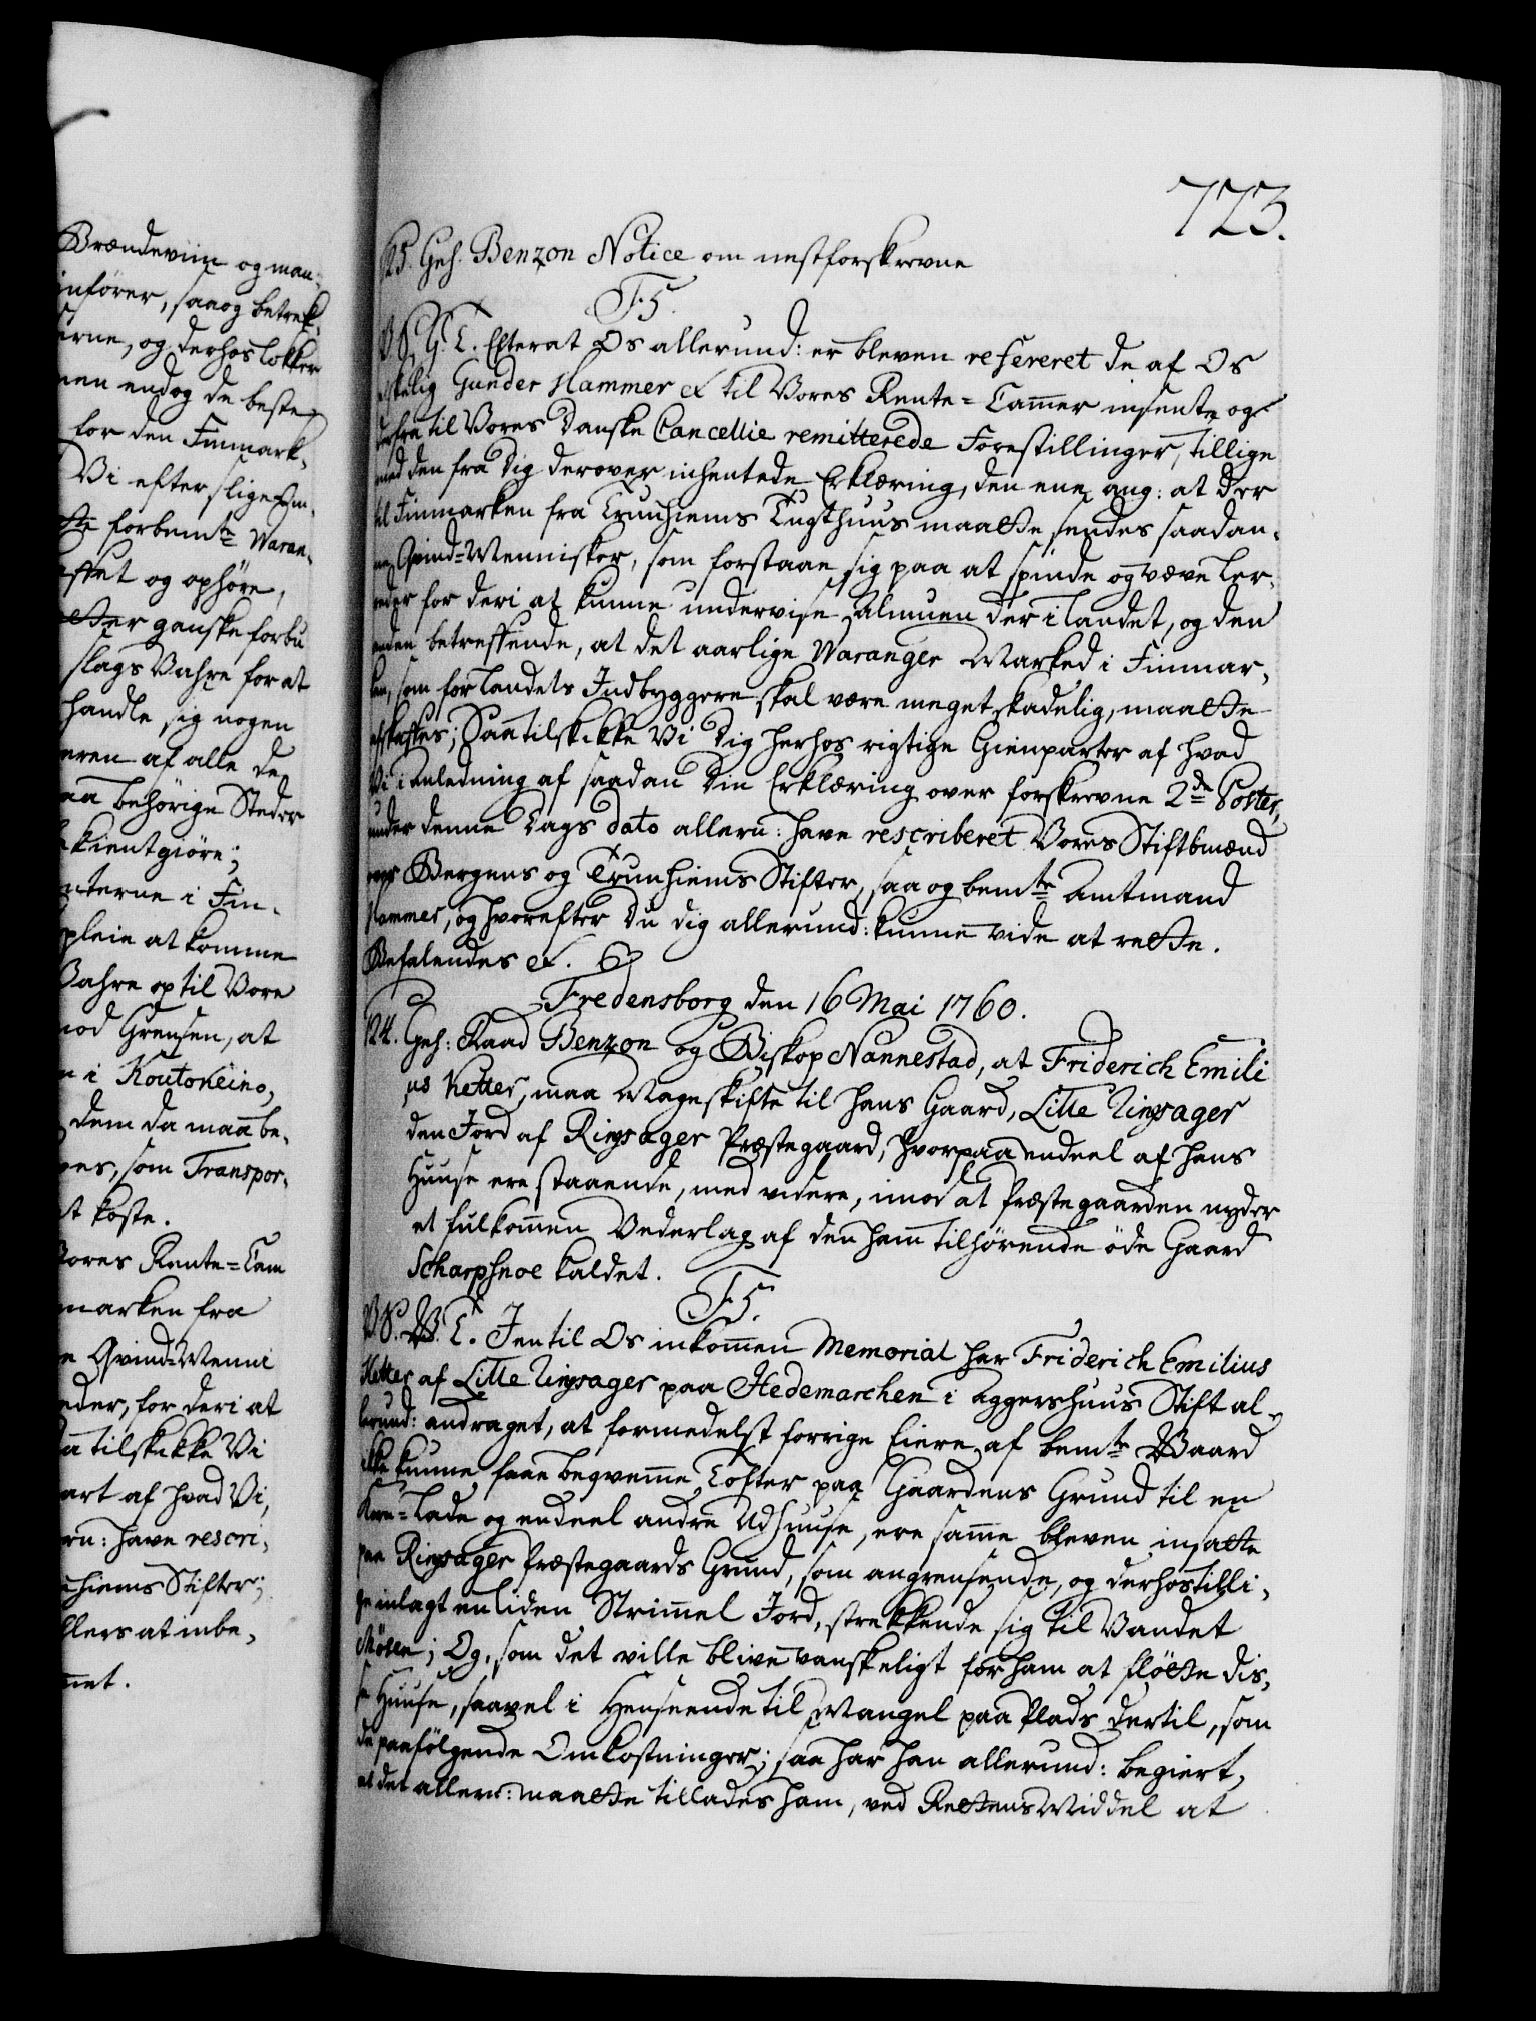 723.
Brændeviin og man-
infører, saa og betræk-
erne, og derhos lokker
men endog de beste
for den Finmark-
Vi efter slige Om-
forbemte Waran-
og ophøre,
etter ganske forbu
slags Vahre for at
handle sig nogen
eren af alle de
aa behörige Steder
bekientgiøre;
nterne i Fin-
pleie at komme
Vahre op til Vore
mod Grensen, at
n i Koutokeino,
dem da maa be-
res, som Transpor-
t koste.
Vores Rente-Cam
marken fra
e Qvind-Menni
eder, for deri at
aa tilskikke Vi
art af hvad Vi,
eru: have rescri-
hiems Stifter;
llers at inbe-
met.
125. Geh. Benzon Notice om nestforskrevne
F5.
V. S. G. T. Efterat Os allerund: er bleven refereret de af Os
elskelig Gunder Hammer &c til Vores Rente-Cammer insente og
derfra til Vores Danske Cancellie remitterede Forestillinger, tillige
med den fra Dig derover inhentede Erklæring, den ene ang: at der
til Finmarken fra Trunhiems Tugthuus maatte sendes saadan-
ne Qvind-Mennisker, som forstaae sig paa at spinde og væve Ler-
reder for deri at kunne undervise Almuen der i Landet, og den
anden betreffende, at det aarlige Waranger Marked i Finmar-
ken, som for Landets Indbyggere skal være meget skadelig, maatte
afskaffes; Saa tilskikke Vi Dig herhos rigtige Gienparter af hvad
Vi i Anledning af saadan Din Erklæring over forskrevne 2de Poster,
under denne Dags dato alleru: have rescriberet Vores Stiftbmænd
over Bergens og Trunhiems Stifter, saa og bemte Amtmand
Hammer, og hvorefter Du dig allerund: kunne vide at rette.
Befalendes &c.
Fredensborg den 16 Mai 1760.
124. Geh: Raad Benzon og Biskop Nannestad, at Friderich Emili
us Ketter, maa Mageskifte til hans Gaard, Lille Ringsager
den Jord af Ringsager Præstegaard, hvorpaa endeel af hans
Huuse ere staaende, med videre, imod at Præstegaarden nyder
et fulkommen Vederlag af den ham tilhørende öde Gaard
Scharpsnoe kaldet.
F5.
V. S. B. T. I en til Os inkommen Memorial har Friderich Emilius
Ketter af Lille Ringsager paa Hedemarchen i Aggershuus Stift al-
lerund: andraget, at formedelst forrige Eiere af bemte Gaard
ikke kunne faae beqvemme Tofter paa Gaardens Grund til en
Korn-Lade og endeel andre Udhuuse, ere samme bleven insatte
paa Ringsager Præstegaards Grund, som angrensende, og derhos tilli-
ge inlagt en liden Strimmel Jord, strekkende sig til Vandet
Miösen; Og, som det ville blive vanskeligt for ham at flötte dis-
se Huuse, saavel i Henseende til Mangel paa Plads dertil, som
de paafölgende Omkostninger; saa har han allerund: begiert,
at det alleru: maatte tillades ham, ved Rettens Middel at